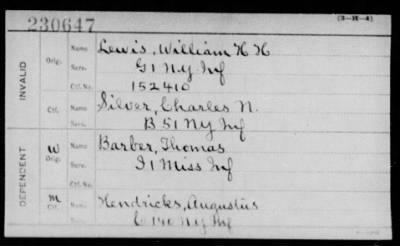 230647
(3-IE-A)
INVALID
Orig. Name Lewis, William H H
Serv. G 1 N.Y. Inf
Ctf. No. 152410
Ctf. Name Silver, Charles N.
Serv. B 51 NY Inf
DEPENDENT
W Orig. Name Barber, Thomas
Serv. I 1 Miss Inf
Ctf. No.
M Ctf. Name Hendricks, Augustus
Serv. C 140 NY Inf